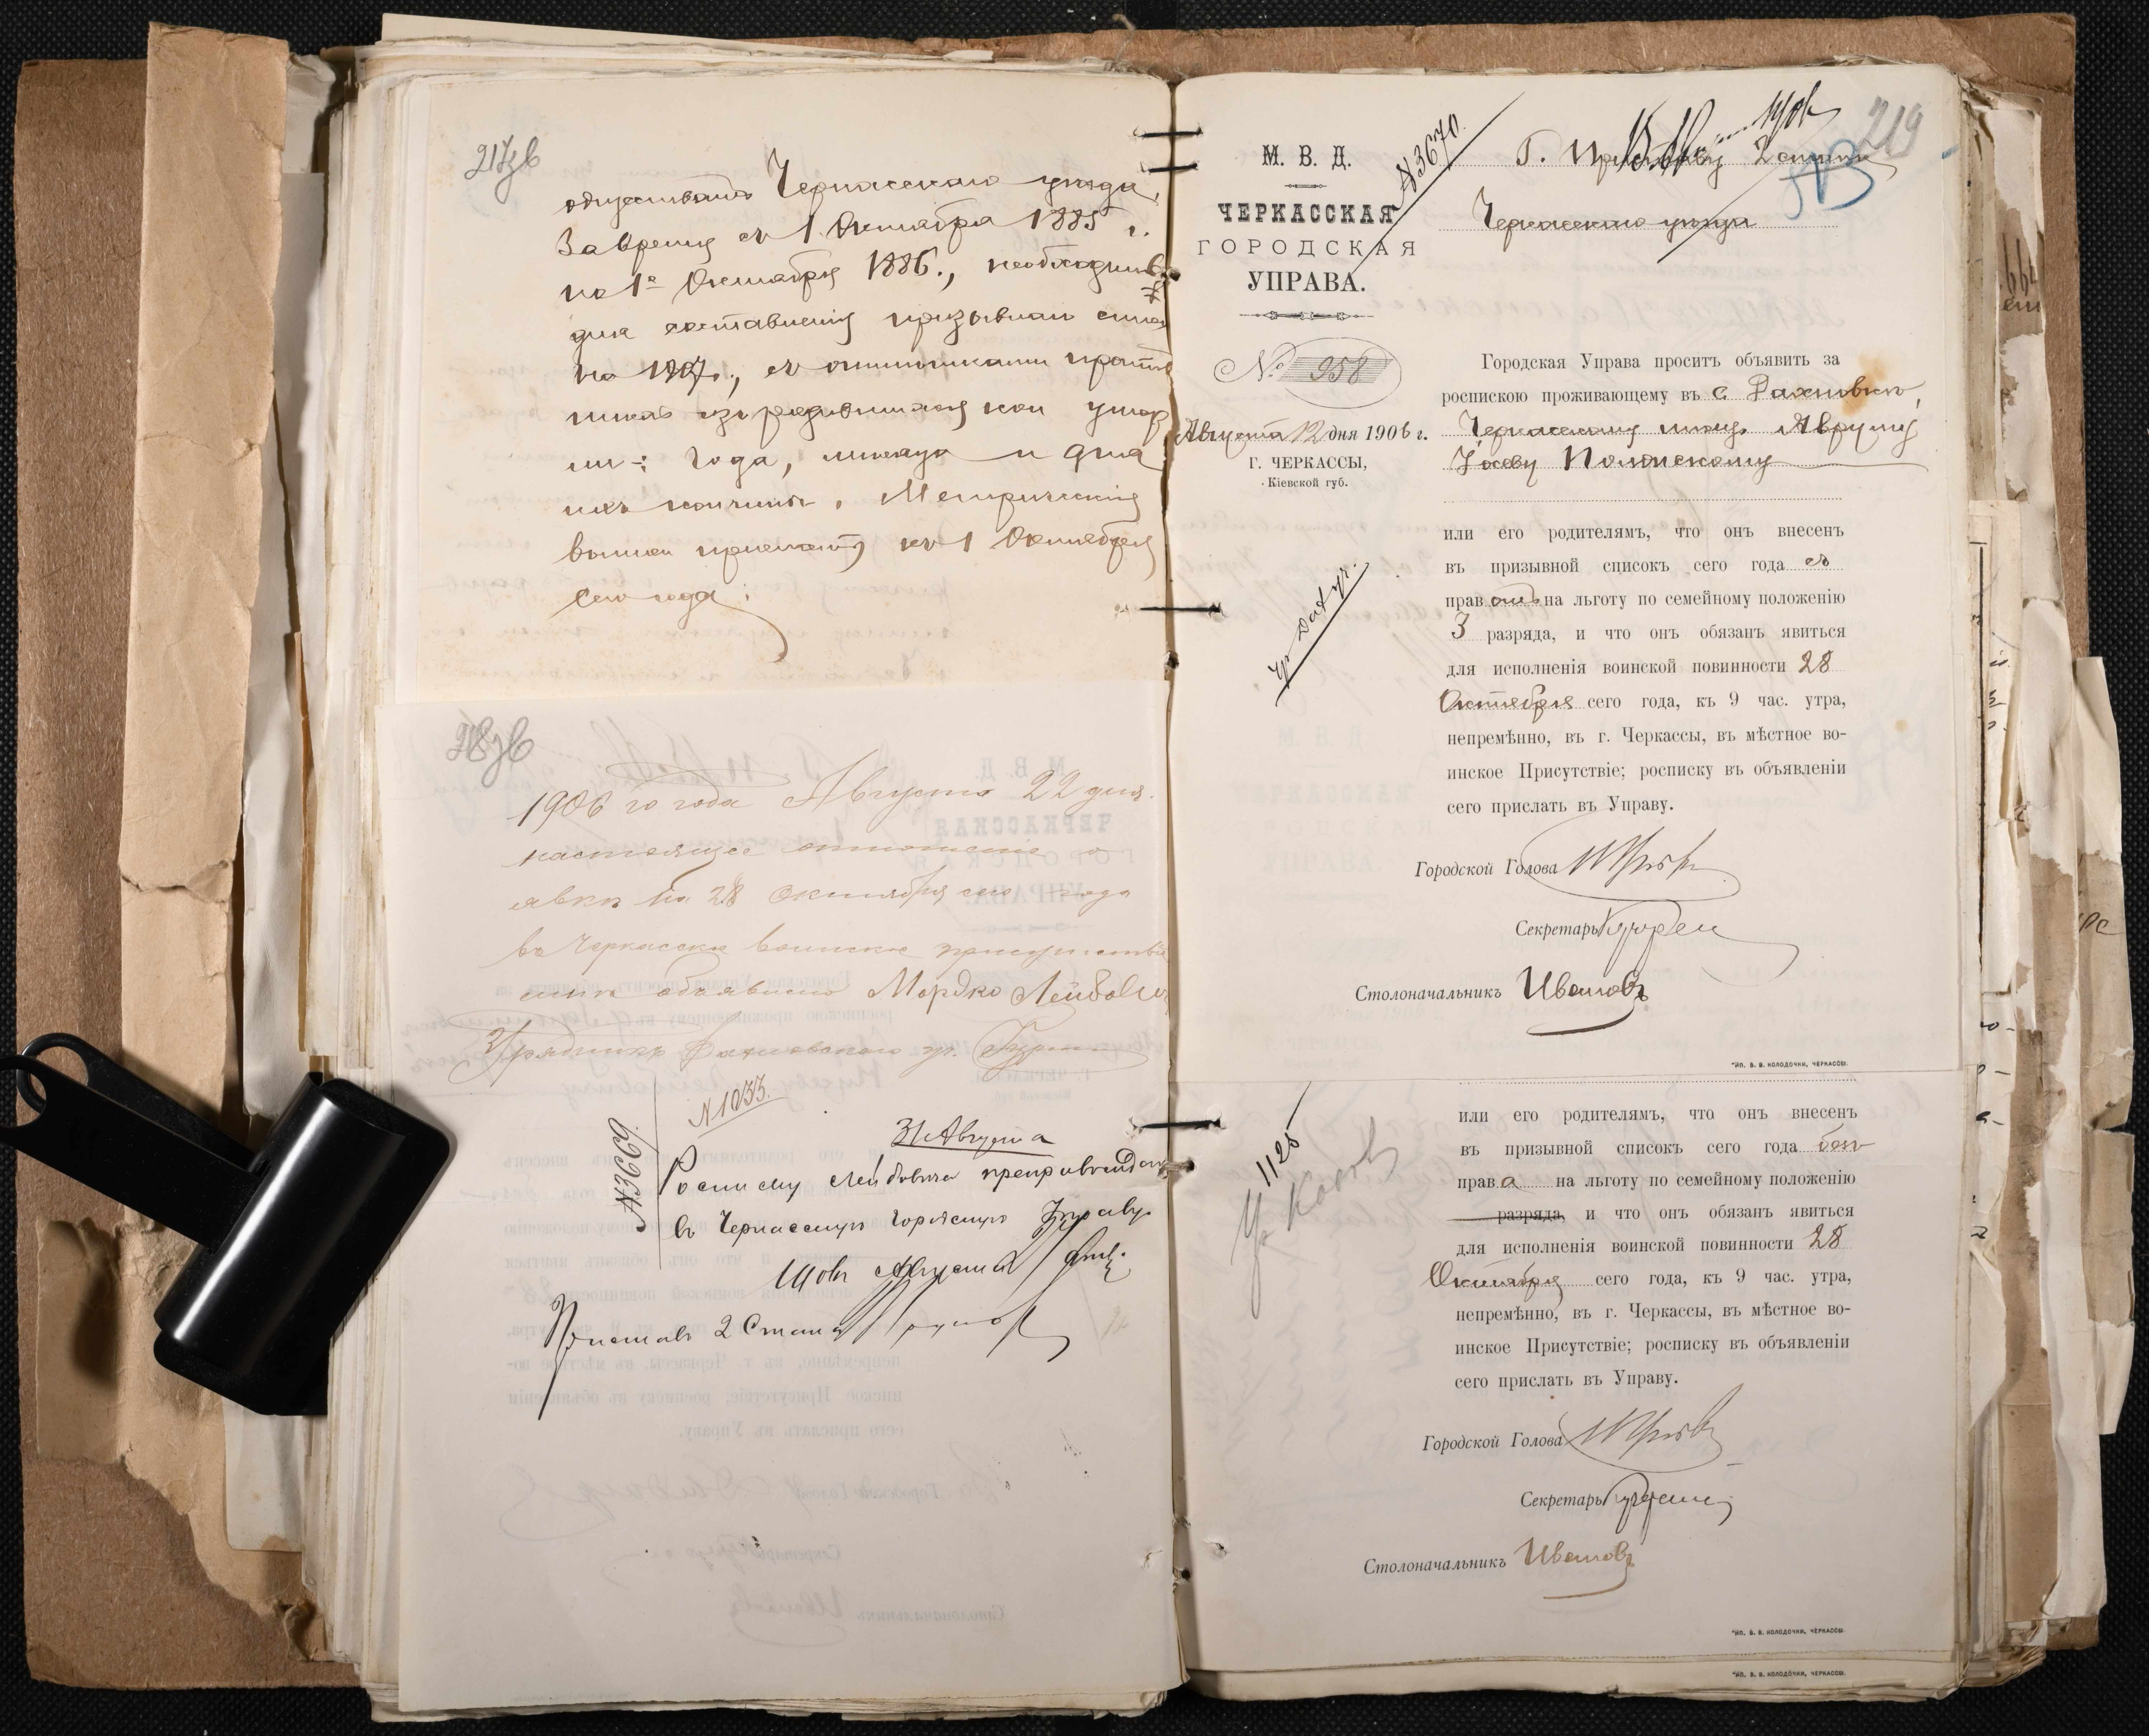 217зв
обществамъ Черкасскаго уѣзда,
За время съ 1 Октября 1885 г.
по 1е Октября 1886 г., необходимыя
для составленія призывнаго списка
на 1907 г., съ отмѣтками противъ
изъ родившихся кои умер
ли: года, мѣсяца и дня
ихъ кончины. Метрическія
къ 1 Октября
сего года.
218зв
1906 го года Августа 22 дня.
настоящее отношеніе о
явкѣ на 28 Октября сего года
въ Черкасское воинское присутствіе
мнѣ объявлено Мордко Лейбовичъ
Урядникъ
N 1033.
N 3669.
31 Августа
Росписку Лейбовича препровождаю
въ Черкасскую Городскую Управу.
Приставъ 2 Стана
219
М. В. Д.
ЧЕРКАССКАЯ
ГОРОДСКАЯ
УПРАВА.
N 3670.
Г. Приставу 2 стана
Черкасскаго уѣзда
№ 958
Августа 12 дня 1906 г.
Г. ЧЕРКАССЫ,
Кіевской губ.
Городская Управа проситъ объявить за
роспискою проживающему въ с
Черкасскому мѣщ. Авруму
Іосеву Полонскому
или его родителямъ, что онъ внесенъ
въ призывной списокъ сего года съ
правомъ на льготу по семейному положенію
3 разряда, и что онъ обязанъ явиться
для исполненія воинской повинности 28
Октября сего года, къ 9 час. утра,
непремѣнно, въ г. Черкассы, въ мѣстное во-
инское Присутствіе; росписку въ объявленіи
сего прислать въ Управу.
Городской Голова
Секретарь
Столоначальникъ Ивановъ
ТИП. В. В. КОЛОДОЧКИ, ЧЕРКАССЫ.
1125
или его родителямъ, что онъ внесенъ
въ призывной списокъ сего года безъ
права на льготу по семейному положенію
разряда, и что онъ обязанъ явиться
для исполненія воинской повинности 28
Октября сего года, къ 9 час. утра,
непремѣнно, въ г. Черкассы, въ мѣстное во-
инское Присутствіе; росписку въ объявленіи
сего прислать въ Управу.
Городской Голова
Секретарь
Столоначальникъ Ивановъ
ТИП. В. В. КОЛОДОЧКИ, ЧЕРКАССЫ.
ТИП. В. В. КОЛОДОЧКИ, ЧЕРКАССЫ.